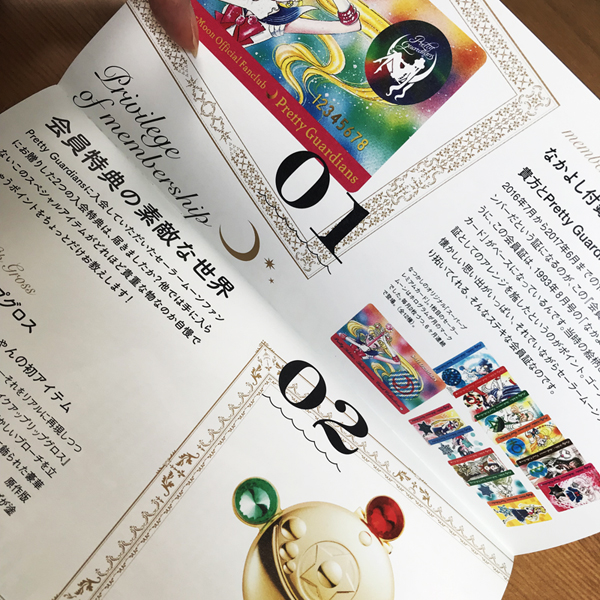 Moon Official Fanclub
Pretty Guardians
12345678
Pretty
Guardians
01
Privilege
of membership
会員特典の素敵な世界
Pretty Guardiansに入会していただいたセーラームーンファン
にお贈りした2つの入会特典は、届きましたか？他では手に入ら
ないこのスペシャルアイテムがどれほど貴重な物なのか自慢で
ゃうポイントをちょっとだけお教えします！
なかよし付録
貴方とPretty Guard
2016年7月から2017年6月までの
ント。だという証になるのが、この「会員
うに、この会員証は、1993年8月号の「なか
カード」がベースになっているんです。当時の絵柄
証としてのアレンジを施したというのがポイント。ゴー
懐かしい思い出がいっぱい。それでいながらセーラームーン
り拓いてくれる、そんなステキな会員証なのです。
なつかしのオリジナル「スーパープ
レミアムカード」。1枚目のセーラー
ムーンはホログラムが月のマーク
でした。毎月2枚づつ、6ヶ月連続
で登場。(全12種)。
02
Gross
プグロス
ゃんの初アイテム
…それをリアルに再現しつつ
イクアップリップグロス』
かしいブローチを立
飾られた豪華
原作版
が塗